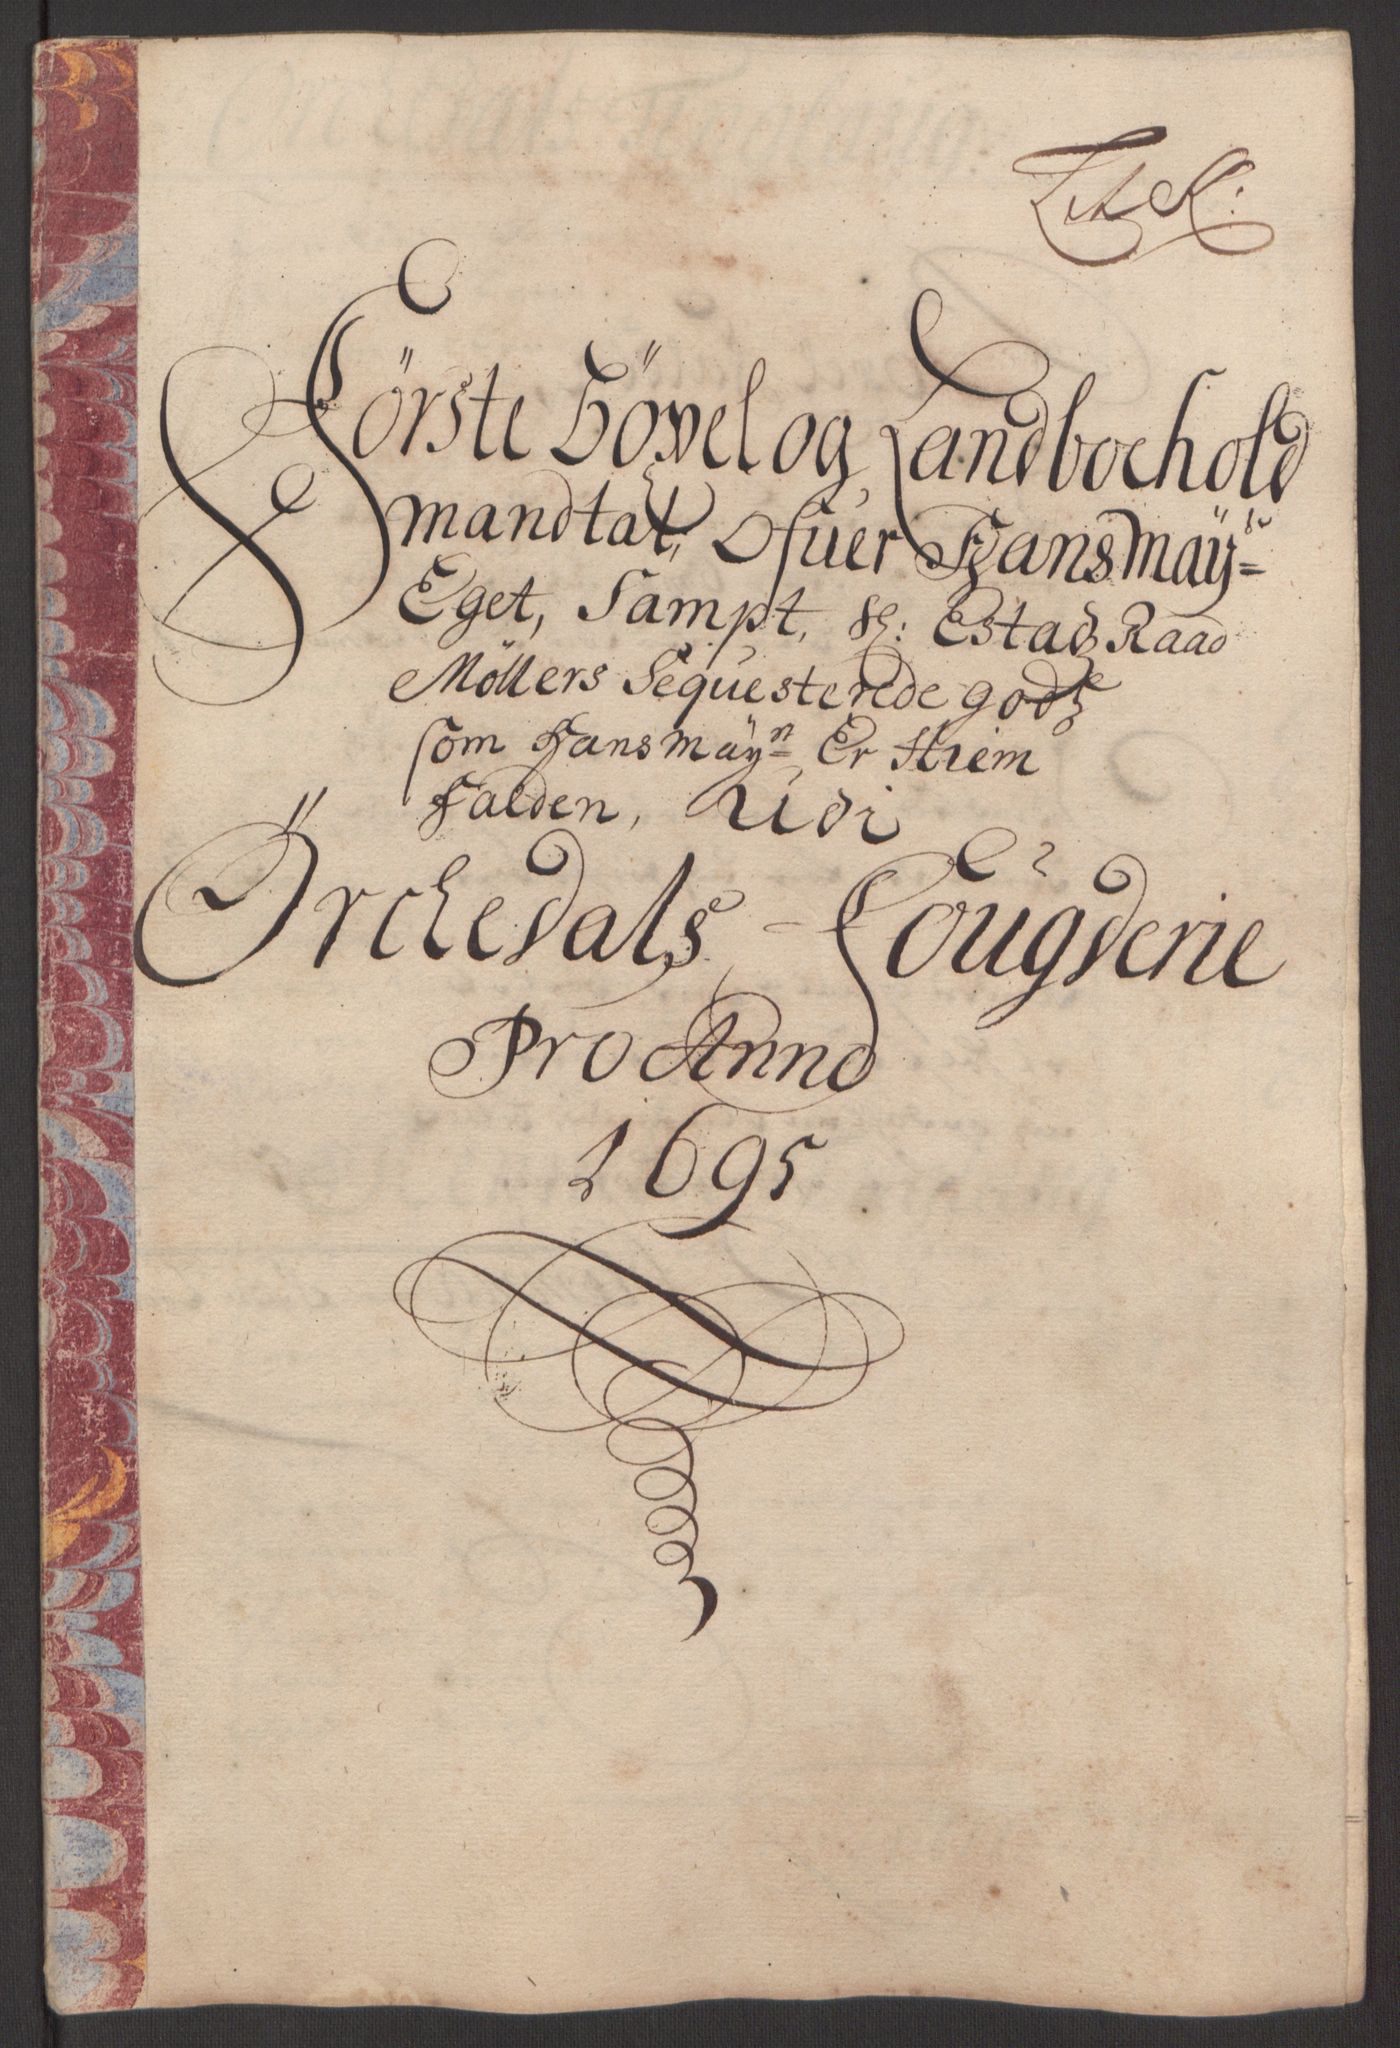 Lit K:
Förste Böxel og Landbochold
mandtal, Ofuer Hans Maÿ:ts
Eget, Sampt, Sl: Estadz Raad
Möllers Sequesterede godz
som Hans Maÿ:n Er Hiem
falden, Udi
Örchedals Fougderie
Pro Anno
1695